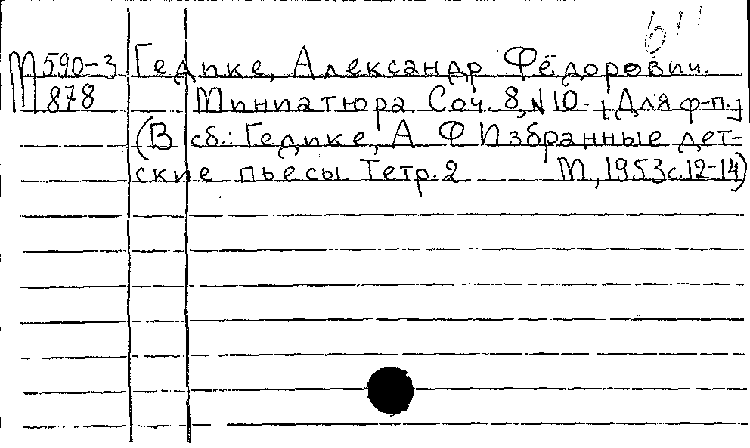 М590-3 Гедике, Александр Фёдорович.
878 Миниатюра Соч. 8, N 10. [Для ф-п.]
(В сб.: Гедике, А Ф Избранные дет-
ские пьесы. Тетр. 2 М, 1953 с. 12-14)